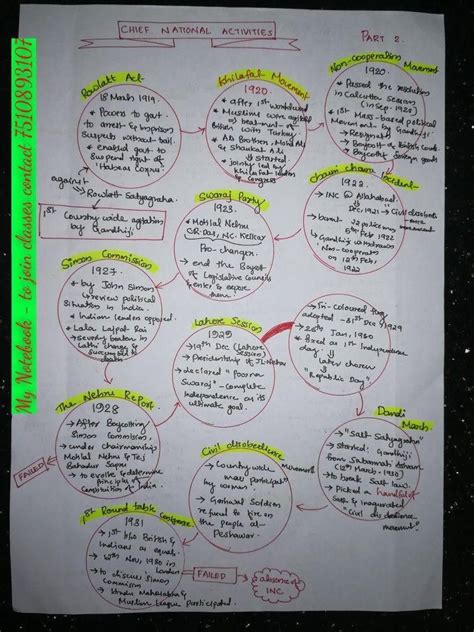 CHIEF NATIONAL ACTIVITIES
PART 2.
My Notebook - to join classes contact 7510893107
Rowlatt Act-
18 March 1919.
* Powers to govt.
to arrest & imprison
suspects without bail.
* enabled govt to
suspend right of
"Habeas Corpus"
against
Rowlatt Satyagraha.
1st
Country wide agitation
by Gandhiji
Khilafat Movement
1920.
* after 1st world war
* Muslims were agitated
by treatment of
British with Turkey
* Ali Brothers, Mohd. Ali
& Shoukat Ali
started.
* jointly led by
khilafat leaders
& Congress
Non-cooperation Movement
1920.
* Passed the resolution
in Calcutta session
(in Sep. 1920)
* 1st Mass-based political
Movement by Gandhiji
→ Resignations
→ Boycott of British Courts
→ Boycott foreign goods
Chauri chaura Incident-
1922.
→ INC @ Allahabad
Dec, 1921 → Civil disobedience
movement
→ burnt 22 policemen
5th Feb, 1922
→ Gandhiji withdrawn
"Non-cooperation
on 12th Feb,
1922
Swaraj Party
1923.
* Motilal Nehru
CR. Das, NC. Kelkar
Pro-changer.
→ end the Boycott
of Legislative Councils
& enter & expose
them.
Simon Commission
1927.
* by John Simon
(review political
situation in India.
* Indian leaders opposed.
* Lala Lajpat Rai
severely beaten in
Lathi charge &
succumbed to
death
Lahore Session
1929
→ 19th Dec (Lahore
Session)
→ Presidentship of J.L. Nehru
→ declared "Poorna
Swaraj" - Complete
Independence as its
ultimate goal.
→ Tri-coloured flag
adopted - 31st Dec, 1929
→ 26th Jan, 1930
→ fixed as 1st Independence
day
↳ later chosen
"Republic Day"
The Nehru Report.
1928
→ After Boycotting
Simon Commission.
→ under chairmanship
Motilal Nehru & Tej
Bahadur Sapru
→ to evolve & determine
Principles of
Constitution of India.
FAILED
Dandi
March.
→ "Salt Satyagraha"
→ started: Gandhiji
from Sabarmati Ashram
(12th March, 1930)
→ to break salt law.
→ Picked a handful of
salt & inaugurated
"Civil disobedience
movement"
Civil disobedience
movement
→ Country wide
mass participat
by women
→ Garhwal Soldiers
refused to fire on
the people at-
Peshawar.
1st Round table Conference
1931
→ 1st b/w British &
Indians as equals.
→ 12th Nov, 1930 in
London
→ to discuss Simon
Commission
→ Hindu Mahasabha &
Muslim League participated.
FAILED
absence of
INC